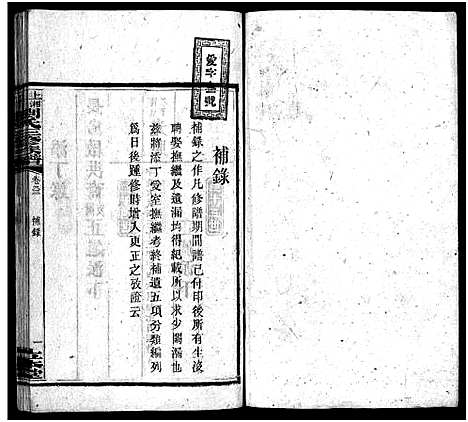 愛字壹號
補錄
補錄之作凡修譜期間譜已付印後所有生沒
聘娶撫繼及遺漏均得紀載所以求少闕漏也
茲將添丁愛室撫繼考終補遺五項分類編列
爲日後踵修時增入更正之攷證云
補錄
一